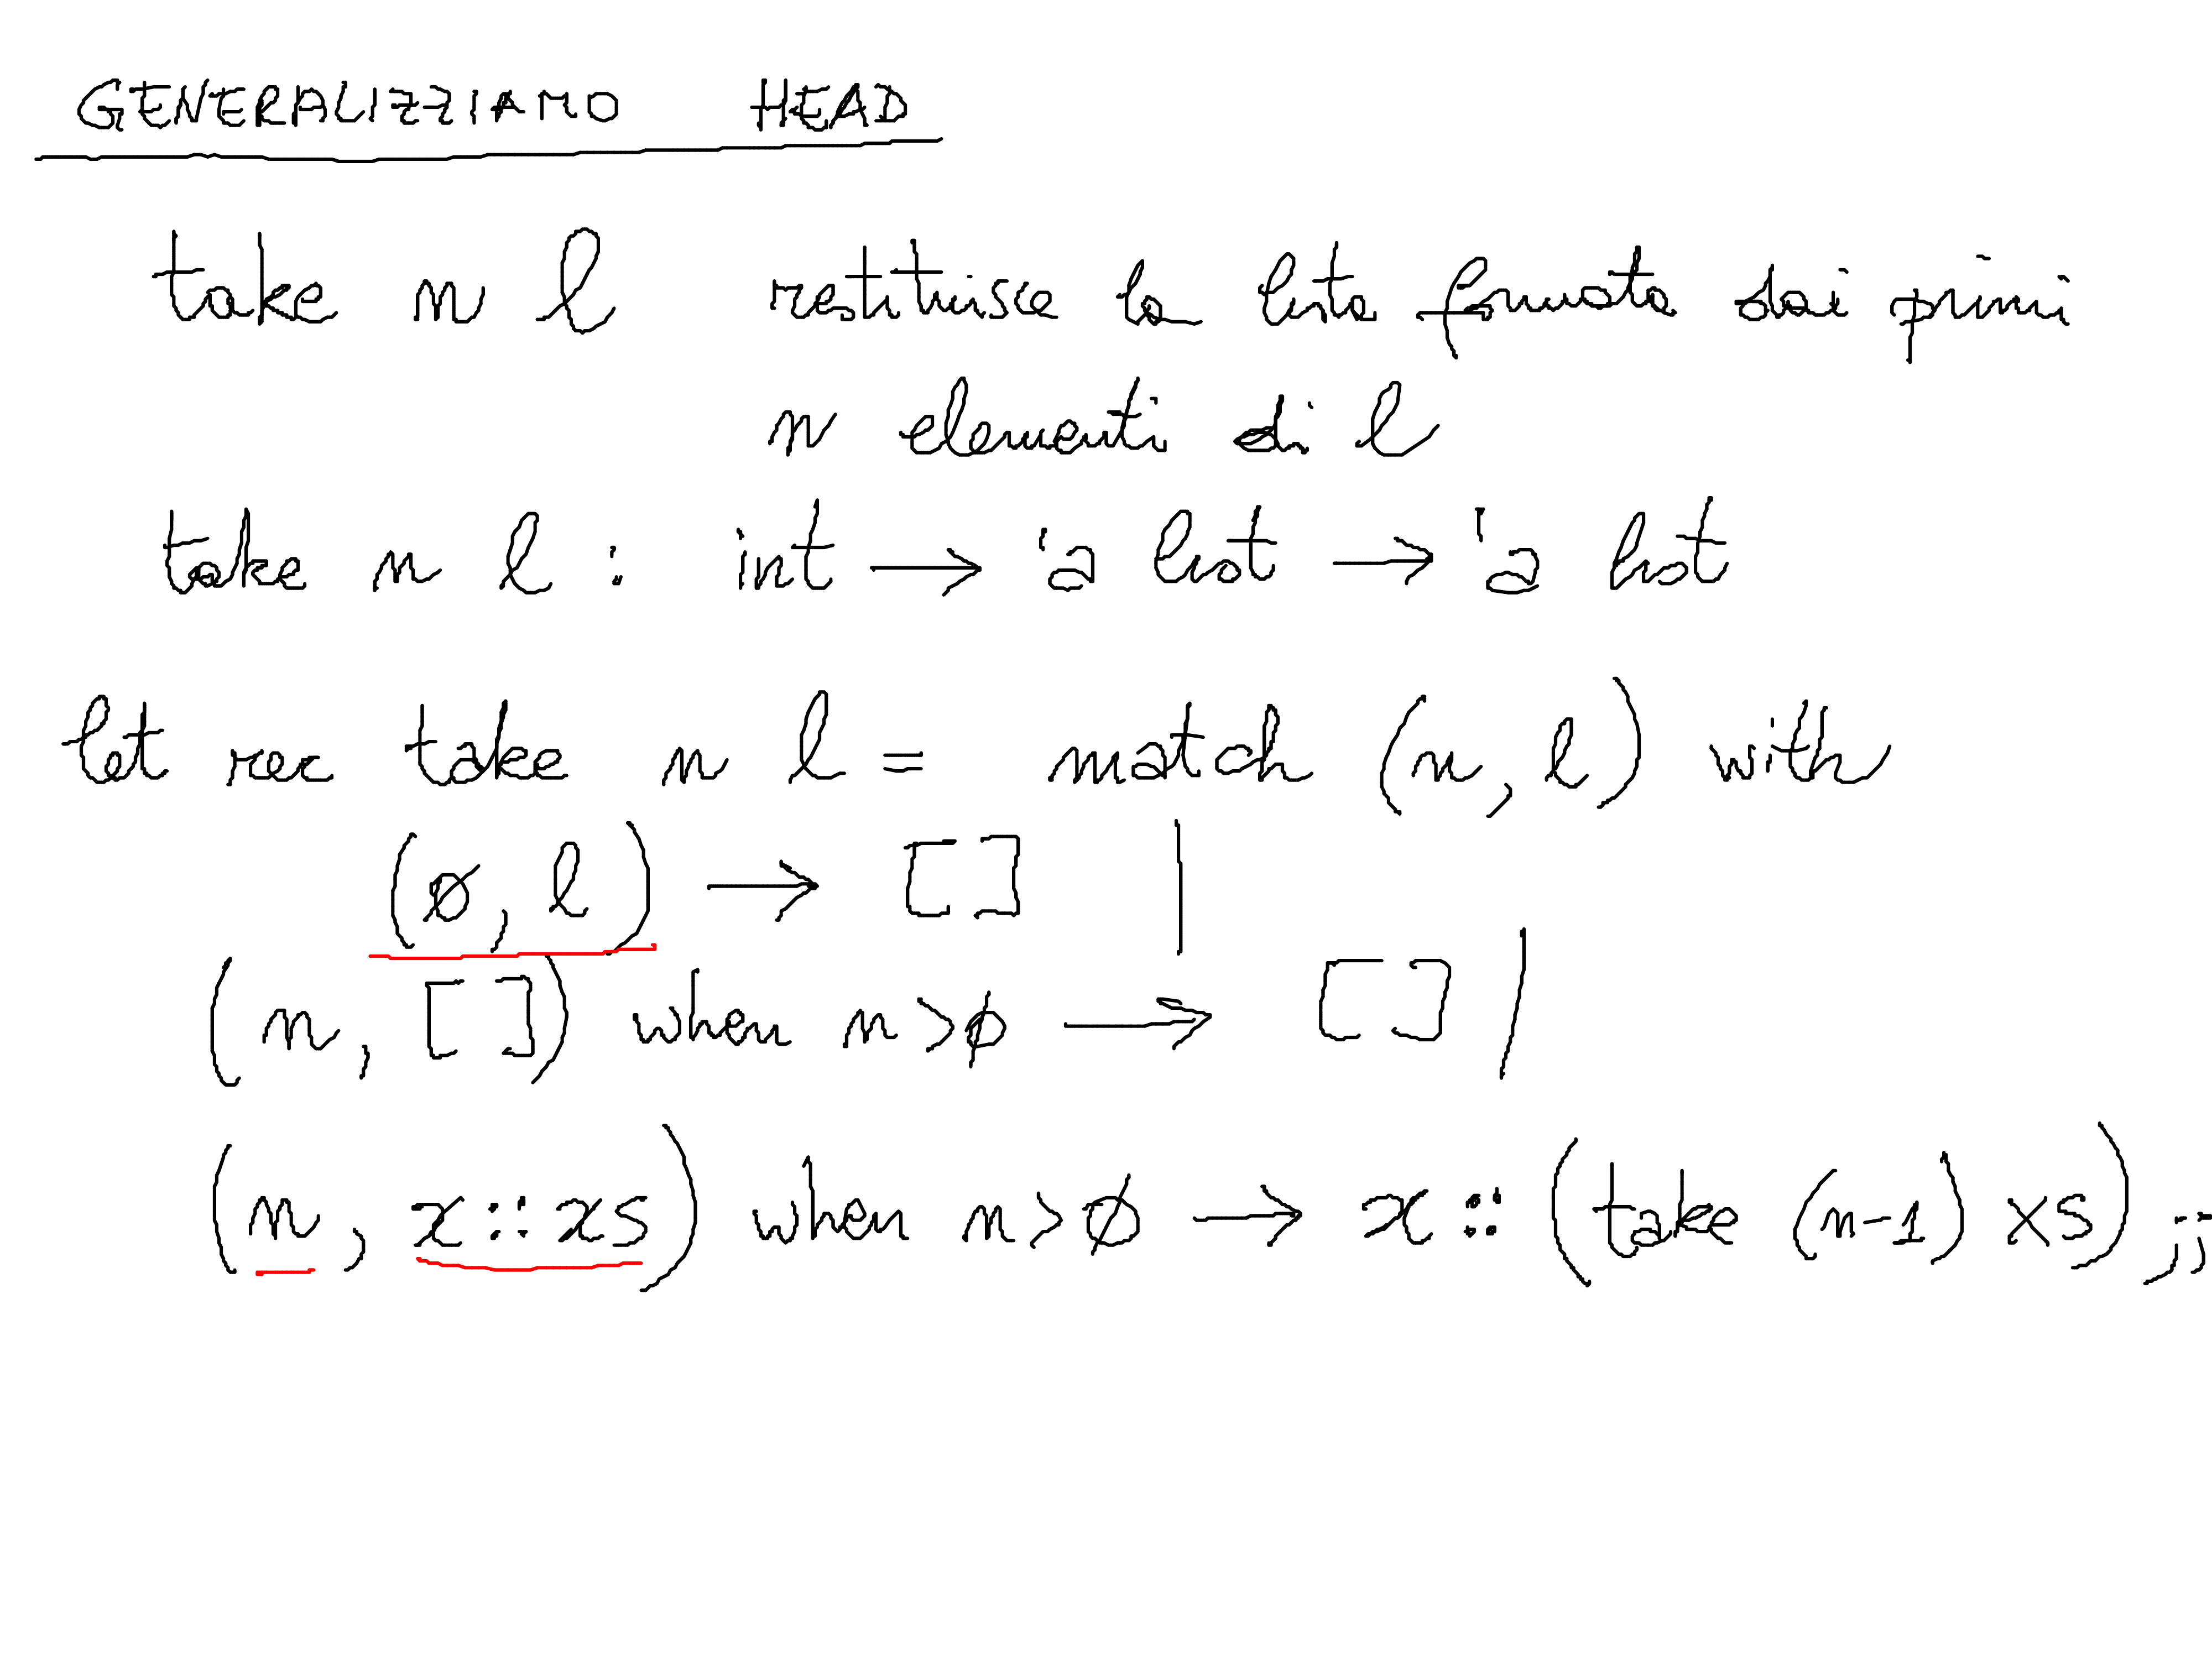 GENERALIZZIAMO HEAD
take n l restituisce la lista formata dai primi
n elementi di l
take n l : int → 'a list → 'a list
let rec take n l = match (n, l) with
(0, l) → [] |
(n, []) when n>0 → [] |
(n, x::xs) when n>0 → x::(take (n-1) xs);;